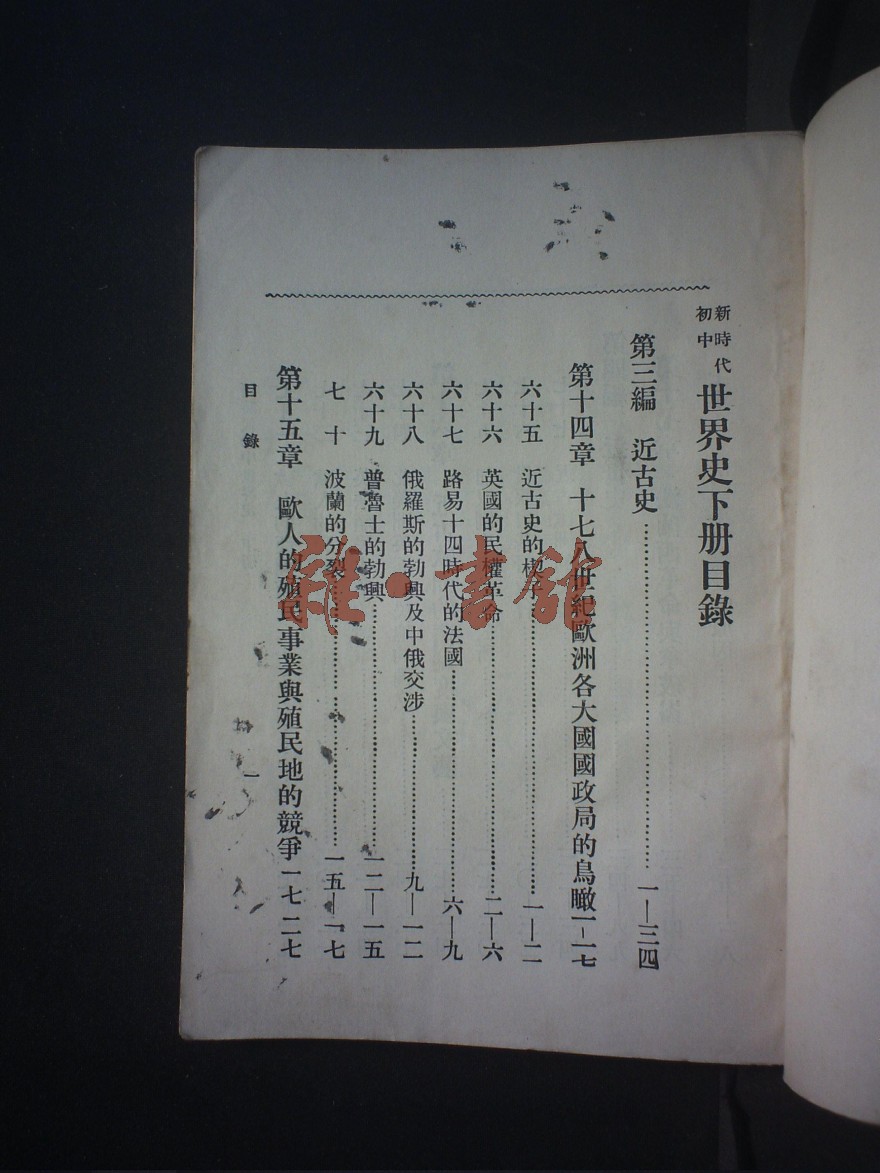 新時代
初中
世界史下册目錄
第三編 近古史……一—三四
第十四章 十七八世紀歐洲各大國國政局的鳥瞰一–一七
六十五 近古史的……一—二
六十六 英國的民權革命……二—六
六十七 路易十四時代的法國……六—九
六十八 俄羅斯的勃興及中俄交涉……九—一二
六十九 普魯士的勃興……一二—一五
七十 波蘭的分裂……一五—一七
第十五章 歐人的殖民事業與殖民地的競爭一七 二七
目錄
一
雜·書館